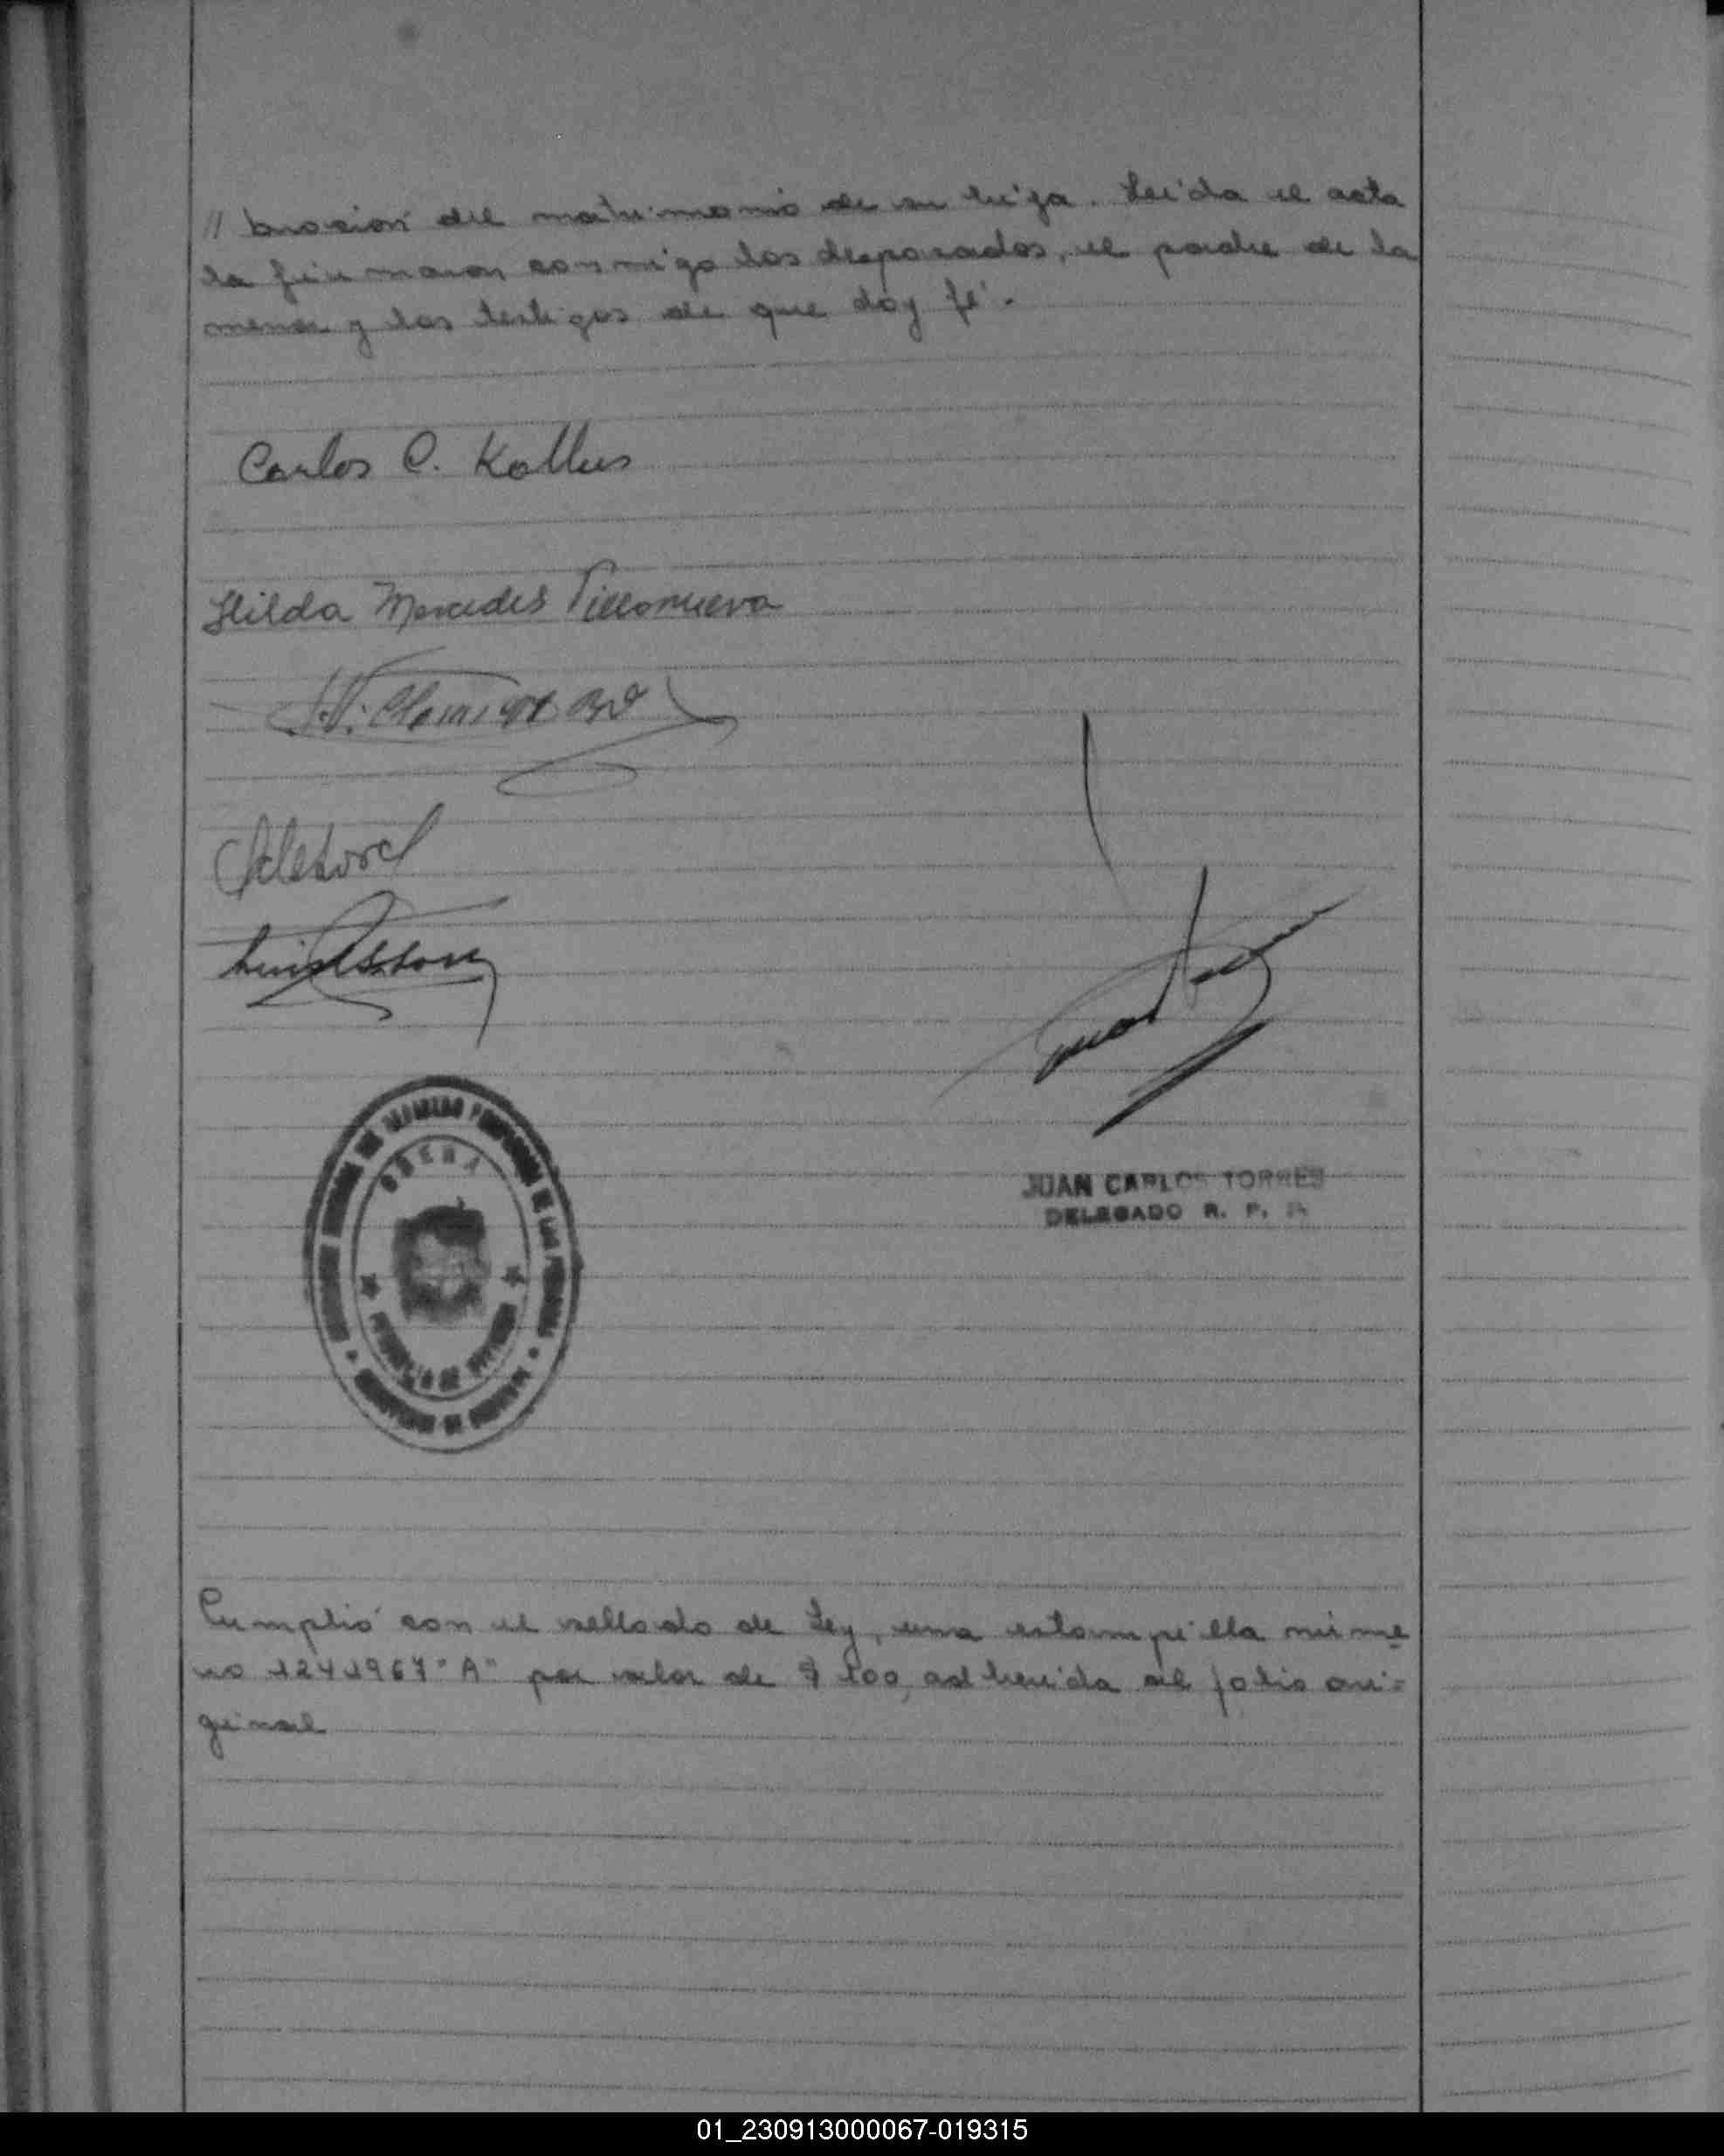 // bración del matrimonio de su hija. Leída el acta
la firmaron conmigo los desposados, el padre de la
menor y los testigos de que doy fé.
Carlos C. Kallus
Hilda Mercedes Villanueva
JUAN CARLOS TORRES
DELEGADO R. P.
OBERA
PROVINCIA DE MISIONES
DE LAS PERSONAS
Cumplió con el sellado de Ley, una estampilla núme
ro 1241967 "A" por valor de $ 100, adherida al folio ori-
ginal
01_230913000067-019315